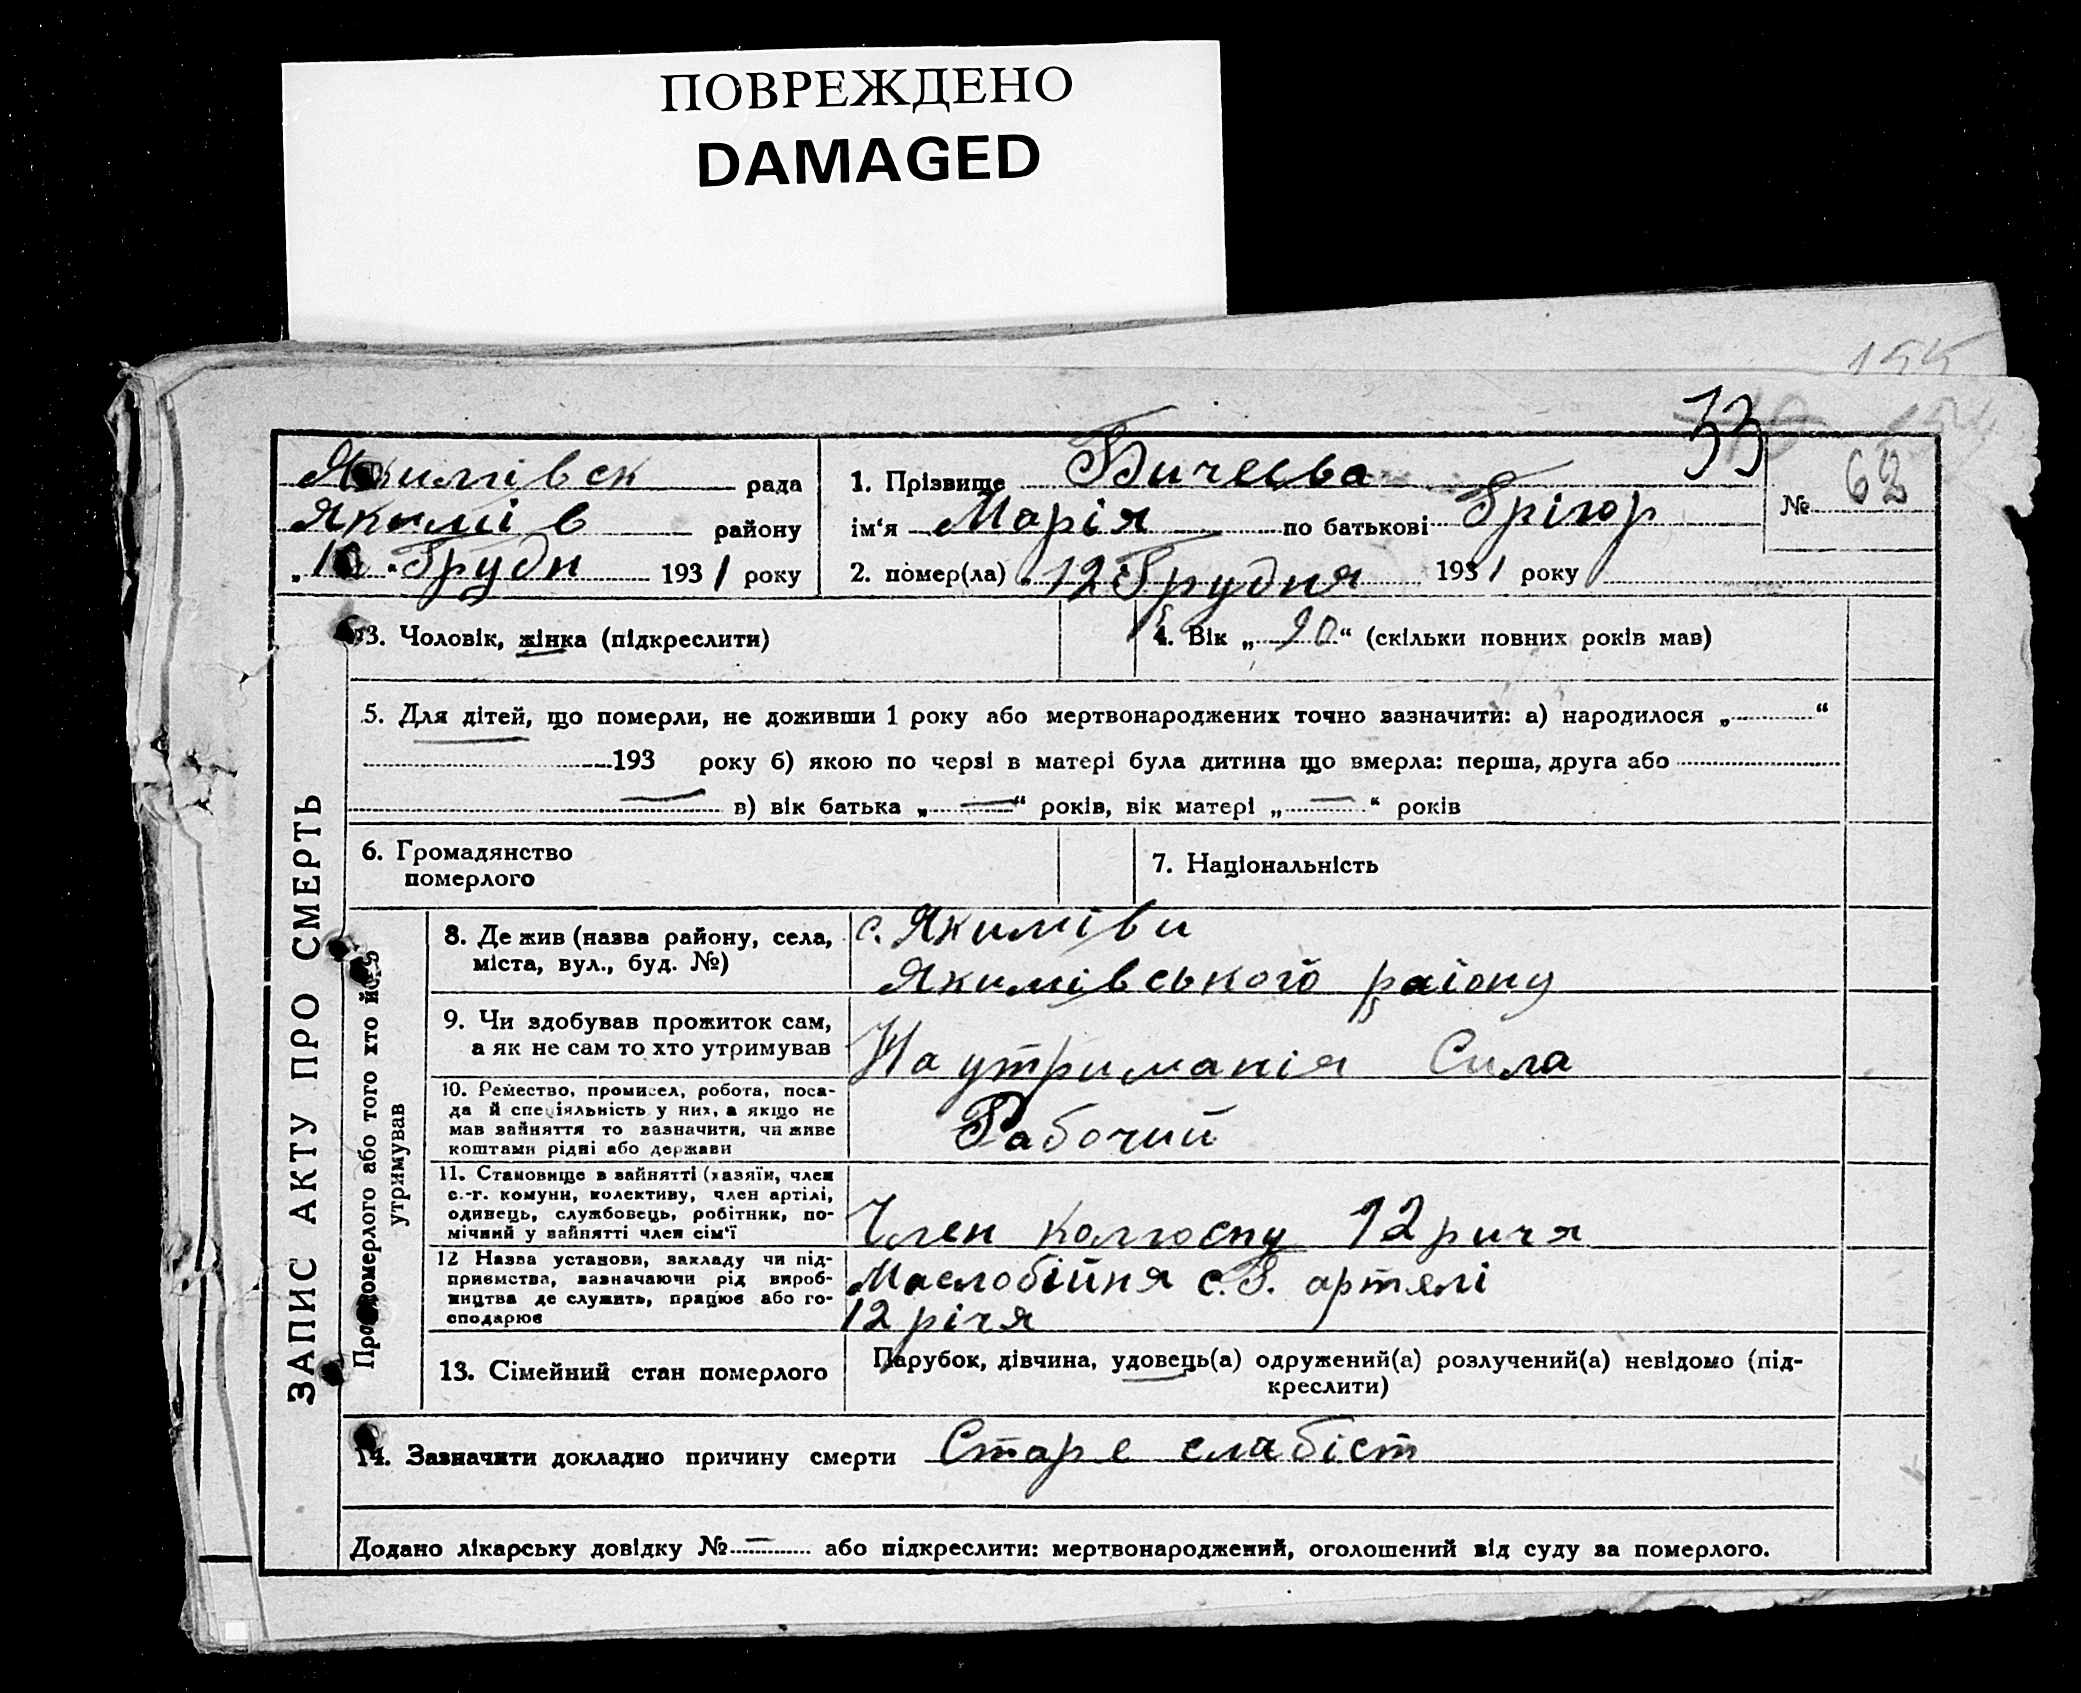 ПОВРЕЖДЕНО
DAMAGED
33
Якимівск рада
Якимів району
Грудн 1931 року
1. Прізвище Бичеєва
ім‘я Марія по батькові Грігор
2. помер(ла) 12 Грудня 1931 року
№ 62
ЗАПИС АКТУ ПРО СМЕРТЬ
3. Чоловік, жінка (підкреслити)
4. Вік „90“ (скільки повних років мав)
5. Для дітей, що померли, не доживши 1 року або мертвонароджених точно зазначити: а) народилося „ “
193 року б) якою по черзі в матері була дитина що вмерла: перша, друга або
— в) вік батька „—“ років, вік матері „—“ років
6. Громадянство
померлого
7. Національність
Про померлого або того хто його
утримував
8. Де жив (назва району, села,
міста, вул., буд. №)
с. Якимівки
Якимівського району
9. Чи здобував прожиток сам,
а як не сам то хто утримував
На утриманія Сила
10. Ремество, промисел, робота, поса-
да й спеціяльність у них, а якщо не
мав зайняття то зазначити, чи живе
коштами рідні або держави
Рабочий
11. Становище в зайнятті (хазяїн, член
с.-г. комуни, колективу, член артілі,
одивець, службовець, робітник, по-
мічний у зайнятті член сім‘ї
Член колгоспу 12 ричя
12 Назва установи, закладу чи під-
приємства, зазначаючи рід вироб-
ництва де служить, працює або го-
сподарює
Маслобійня с.г. артялі
12 річя
13. Сімейний стан померлого
Парубок, дівчина, удовець(а) одружений(а) розлучений(а) невідомо (під-
креслити)
14. Зазначити докладно причину смерти Старе слабіст
Додано лікарську довідку №— або підкреслити: мертвонароджений, оголошений від суду за померлого.